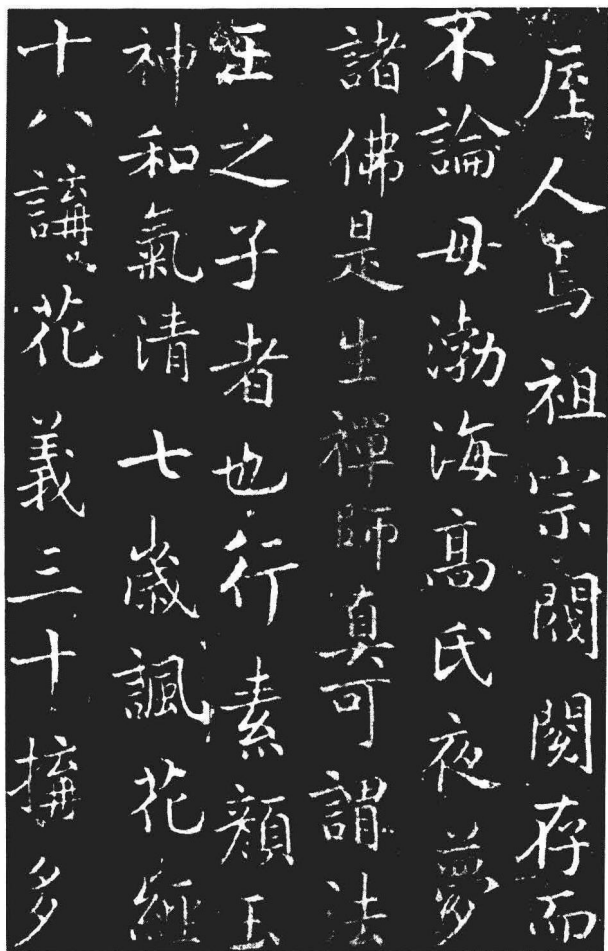 厔人焉祖宗閥閱存而
不論母渤海高氏夜夢
諸佛是生禪師真可謂法
王之子者也行素顏玉
神和氣清七歲諷花經
十八講花義三十搆多